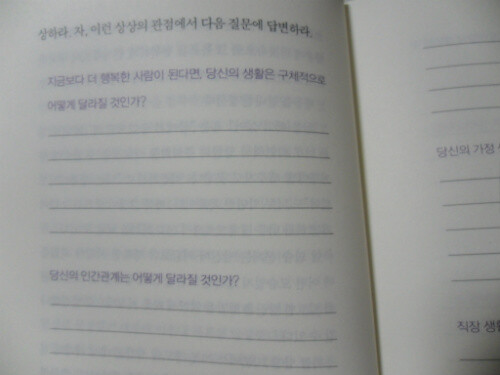 상하라. 자, 이런 상상의 관점에서 다음 질문에 답변하라.
지금보다 더 행복한 사람이 된다면, 당신의 생활은 구체적으로
어떻게 달라질 것인가?
당신의 인간관계는 어떻게 달라질 것인가?
당신의 가정
직장 생